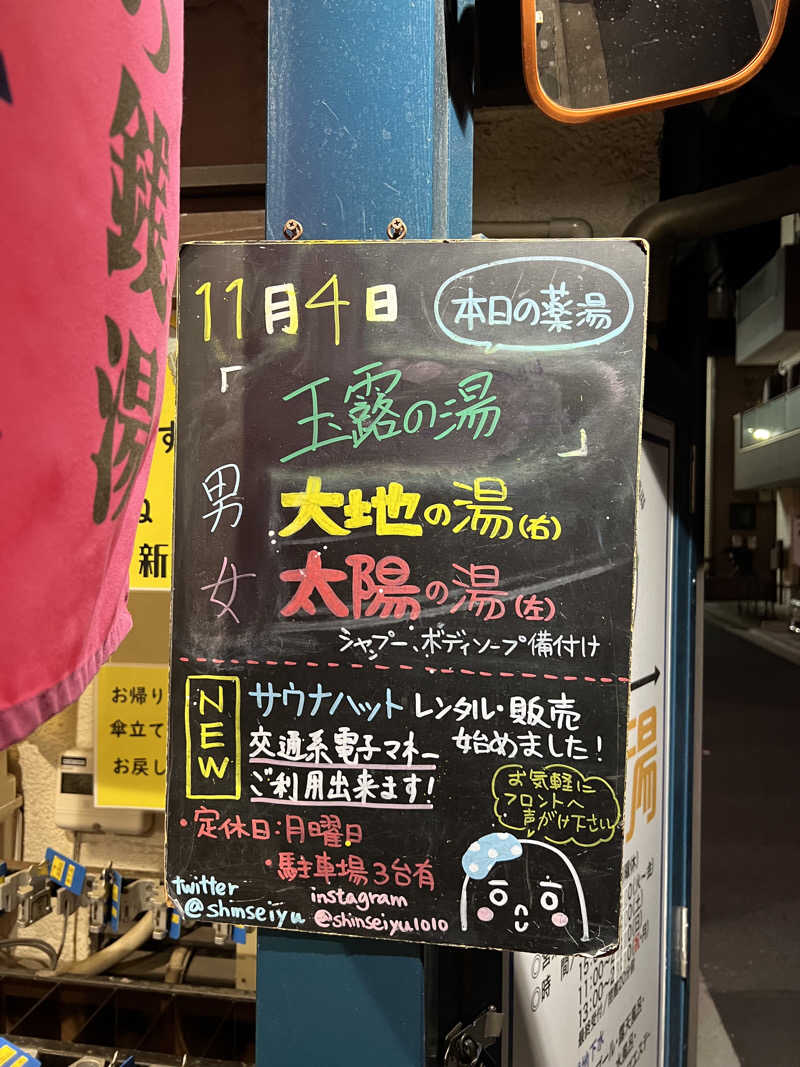 銭湯
11月4日
本日の薬湯
「玉露の湯」
男 大地の湯(右)
女 太陽の湯(左)
シャンプー、ボディソープ備付け
NEW
サウナハット レンタル・販売
始めました!
交通系電子マネー
ご利用出来ます!
お気軽に
フロントへ
声がけ下さい
・定休日:月曜日
・駐車場3台有
twitter
@shmseiyu
instagram
@shinseiyu1010
新
お帰り
傘立て
お戻し
湯